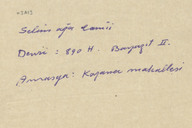 Selim ağa Camii
Devri : 890 H. Bayazit II.
Amasya: Kozanca mahallesi